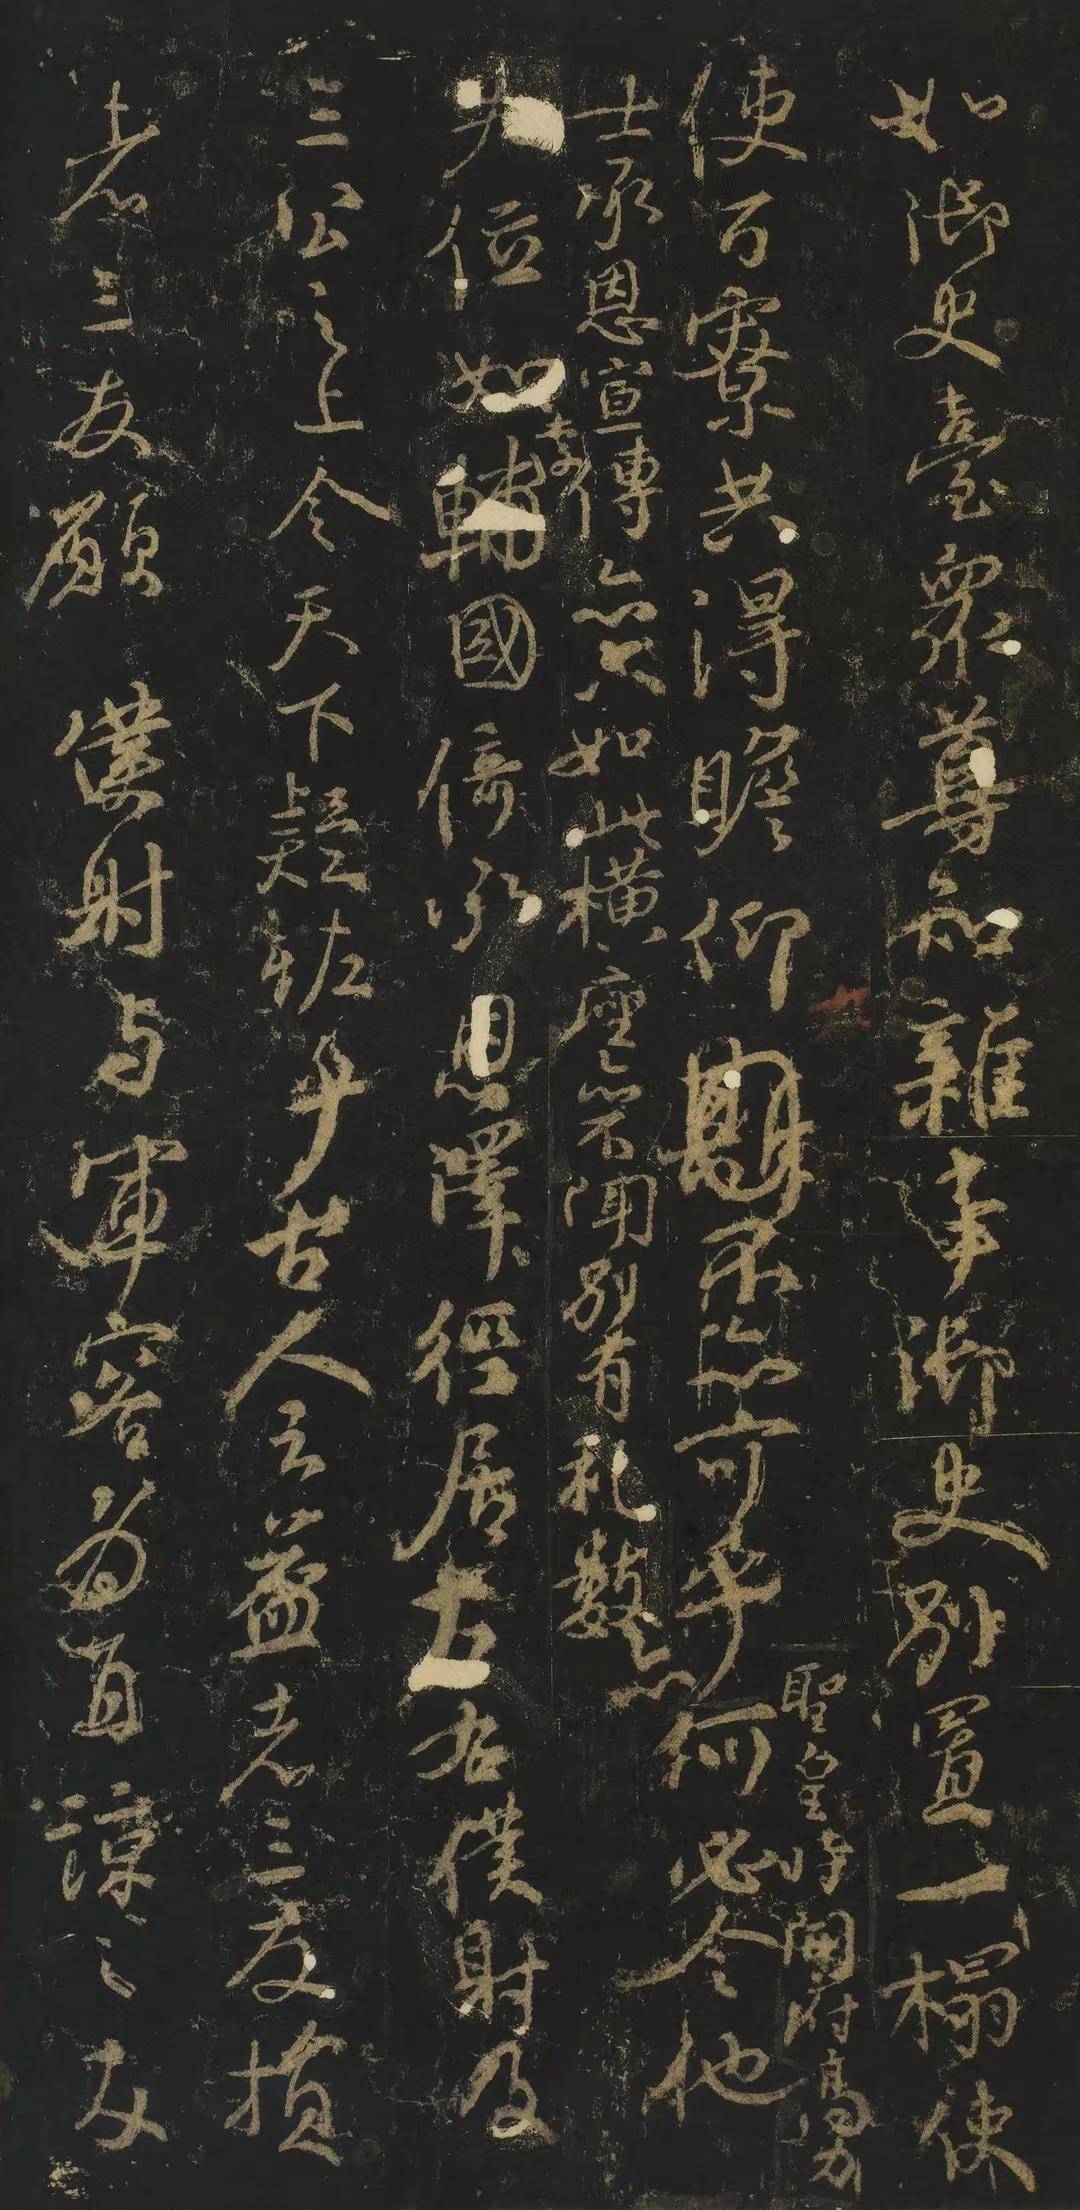 如御史臺眾尊知雜事御史別置一榻使
聖皇時開府高力
使百寮共得瞻仰不亦可乎何必令他
士承恩宣傳亦只如此橫座亦不聞別有礼數亦
失位如李輔國倚承恩澤徑居左右僕射及
三公之上令天下疑恠乎古人云益者三友損
者三友願僕射与軍容為直諒之友